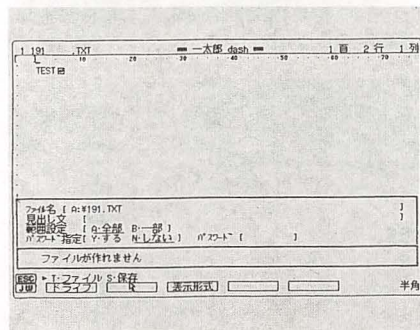 1 191 .TXT 一太郎 dash 1 頁 2 行 1 列
10 20 30 40 50 60 70
TEST
ファイル名 [ A:¥191.TXT ]
見出し文 [ ]
範囲設定 [ A・全部 B・一部 ]
パスワード指定[ Y・する N・しない ] パスワード [ ]
ファイルが作れません
ESC ▸ T・ファイル S・保存
JW ドライブ 表示形式 半角